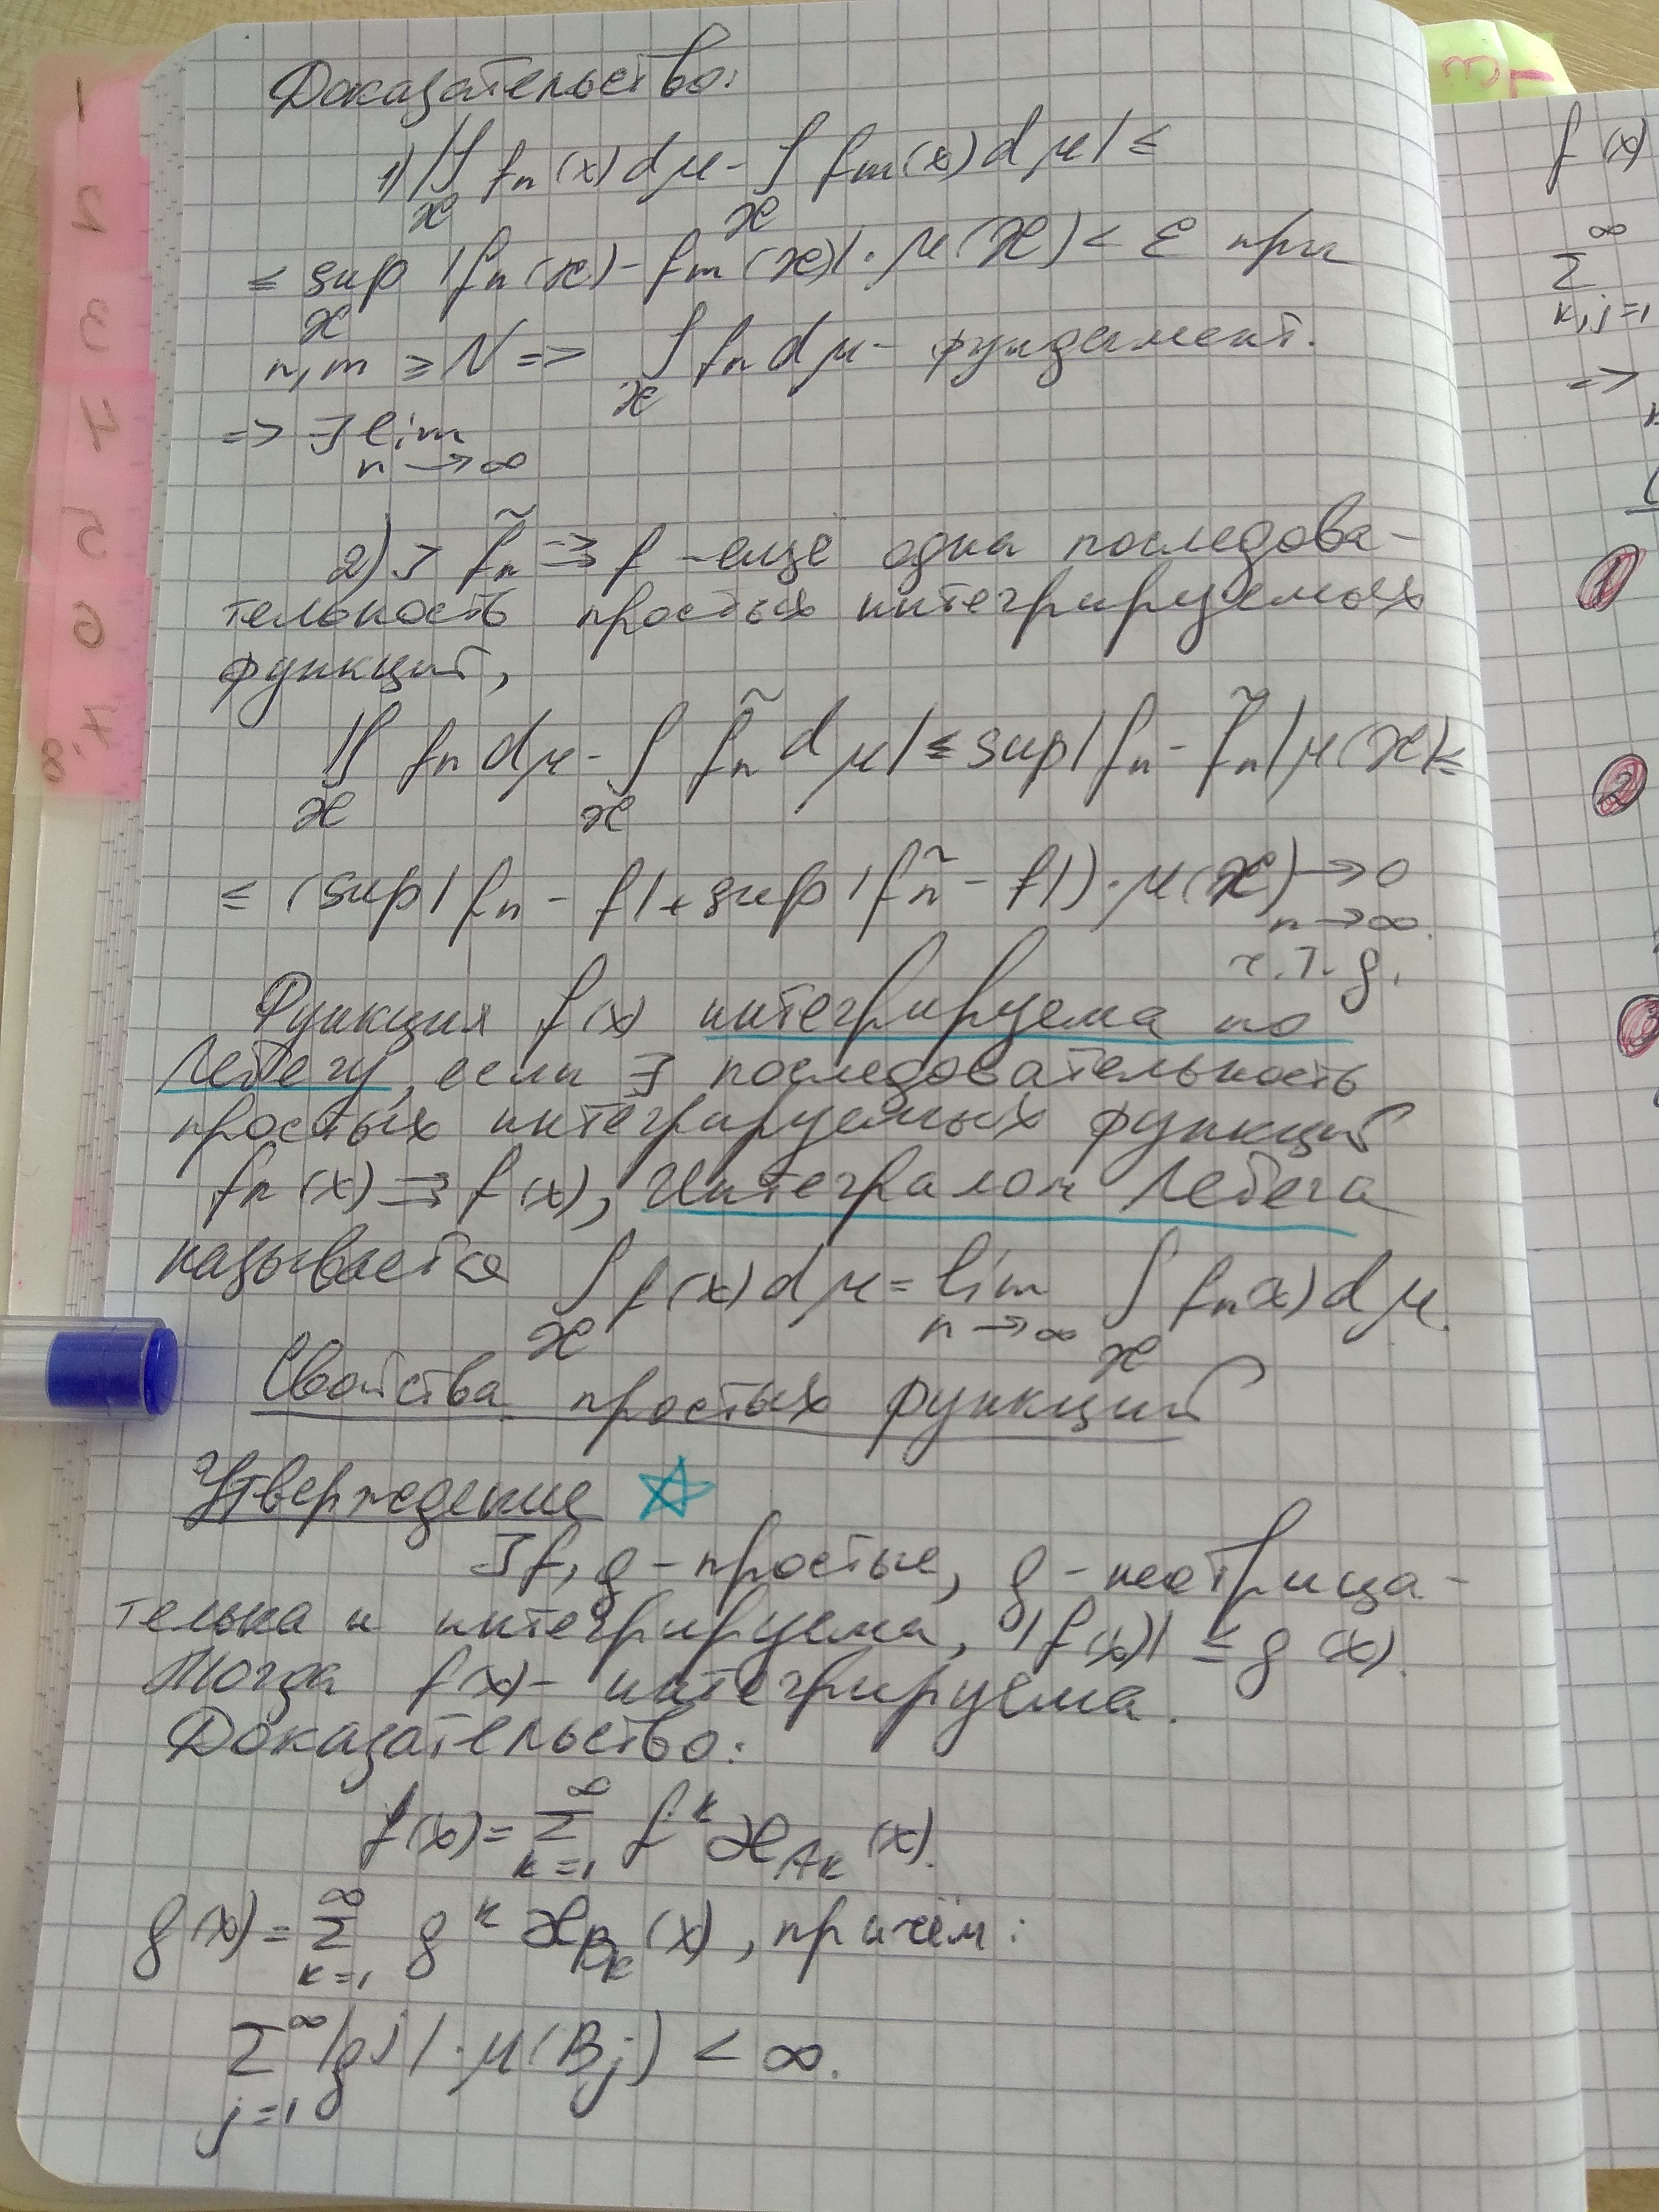 Доказательство:
1) |∫ fn(x) dμ - ∫ fm(x) dμ| ≤
𝒳 𝒳
≤ sup |fn(x) - fm(x)| · μ(𝒳) < ε при
𝒳
n, m ≥ N => ∫ fn dμ - фундамент.
𝒳
=> ∃ lim
n → ∞
2) ∃ f̃n ⇉ f - еще одна последова-
тельность простых интегрируемых
функций,
|∫ fn dμ - ∫ f̃n dμ| ≤ sup |fn - f̃n| μ(𝒳) ≤
𝒳 𝒳
≤ (sup |fn - f| + sup |f̃n - f|) · μ(𝒳) → 0
n → ∞.
ч.т.д.
Функция f(x) интегрируема по
Лебегу, если ∃ последовательность
простых интегрируемых функций
fn(x) ⇉ f(x), Интегралом Лебега
называется ∫ f(x) dμ = lim ∫ fn(x) dμ.
𝒳 n → ∞ 𝒳
Свойства простых функций
Утверждение ☆
∃ f, g - простые, g - неотрица-
тельна и интегрируема, |f(x)| ≤ g(x).
Тогда f(x) - интегрируема.
Доказательство:
f(x) = ∑ f^k 𝒳_Ak (x).
∞
k=1
g(x) = ∑ g^k 𝒳_Bk (x), причём:
∞
k=1
∑ |g^j| · μ(Bj) < ∞.
∞
j=1
f(x)
∞
∑
k,j=1
=>
1
2
3
1
2
3
4
5
6